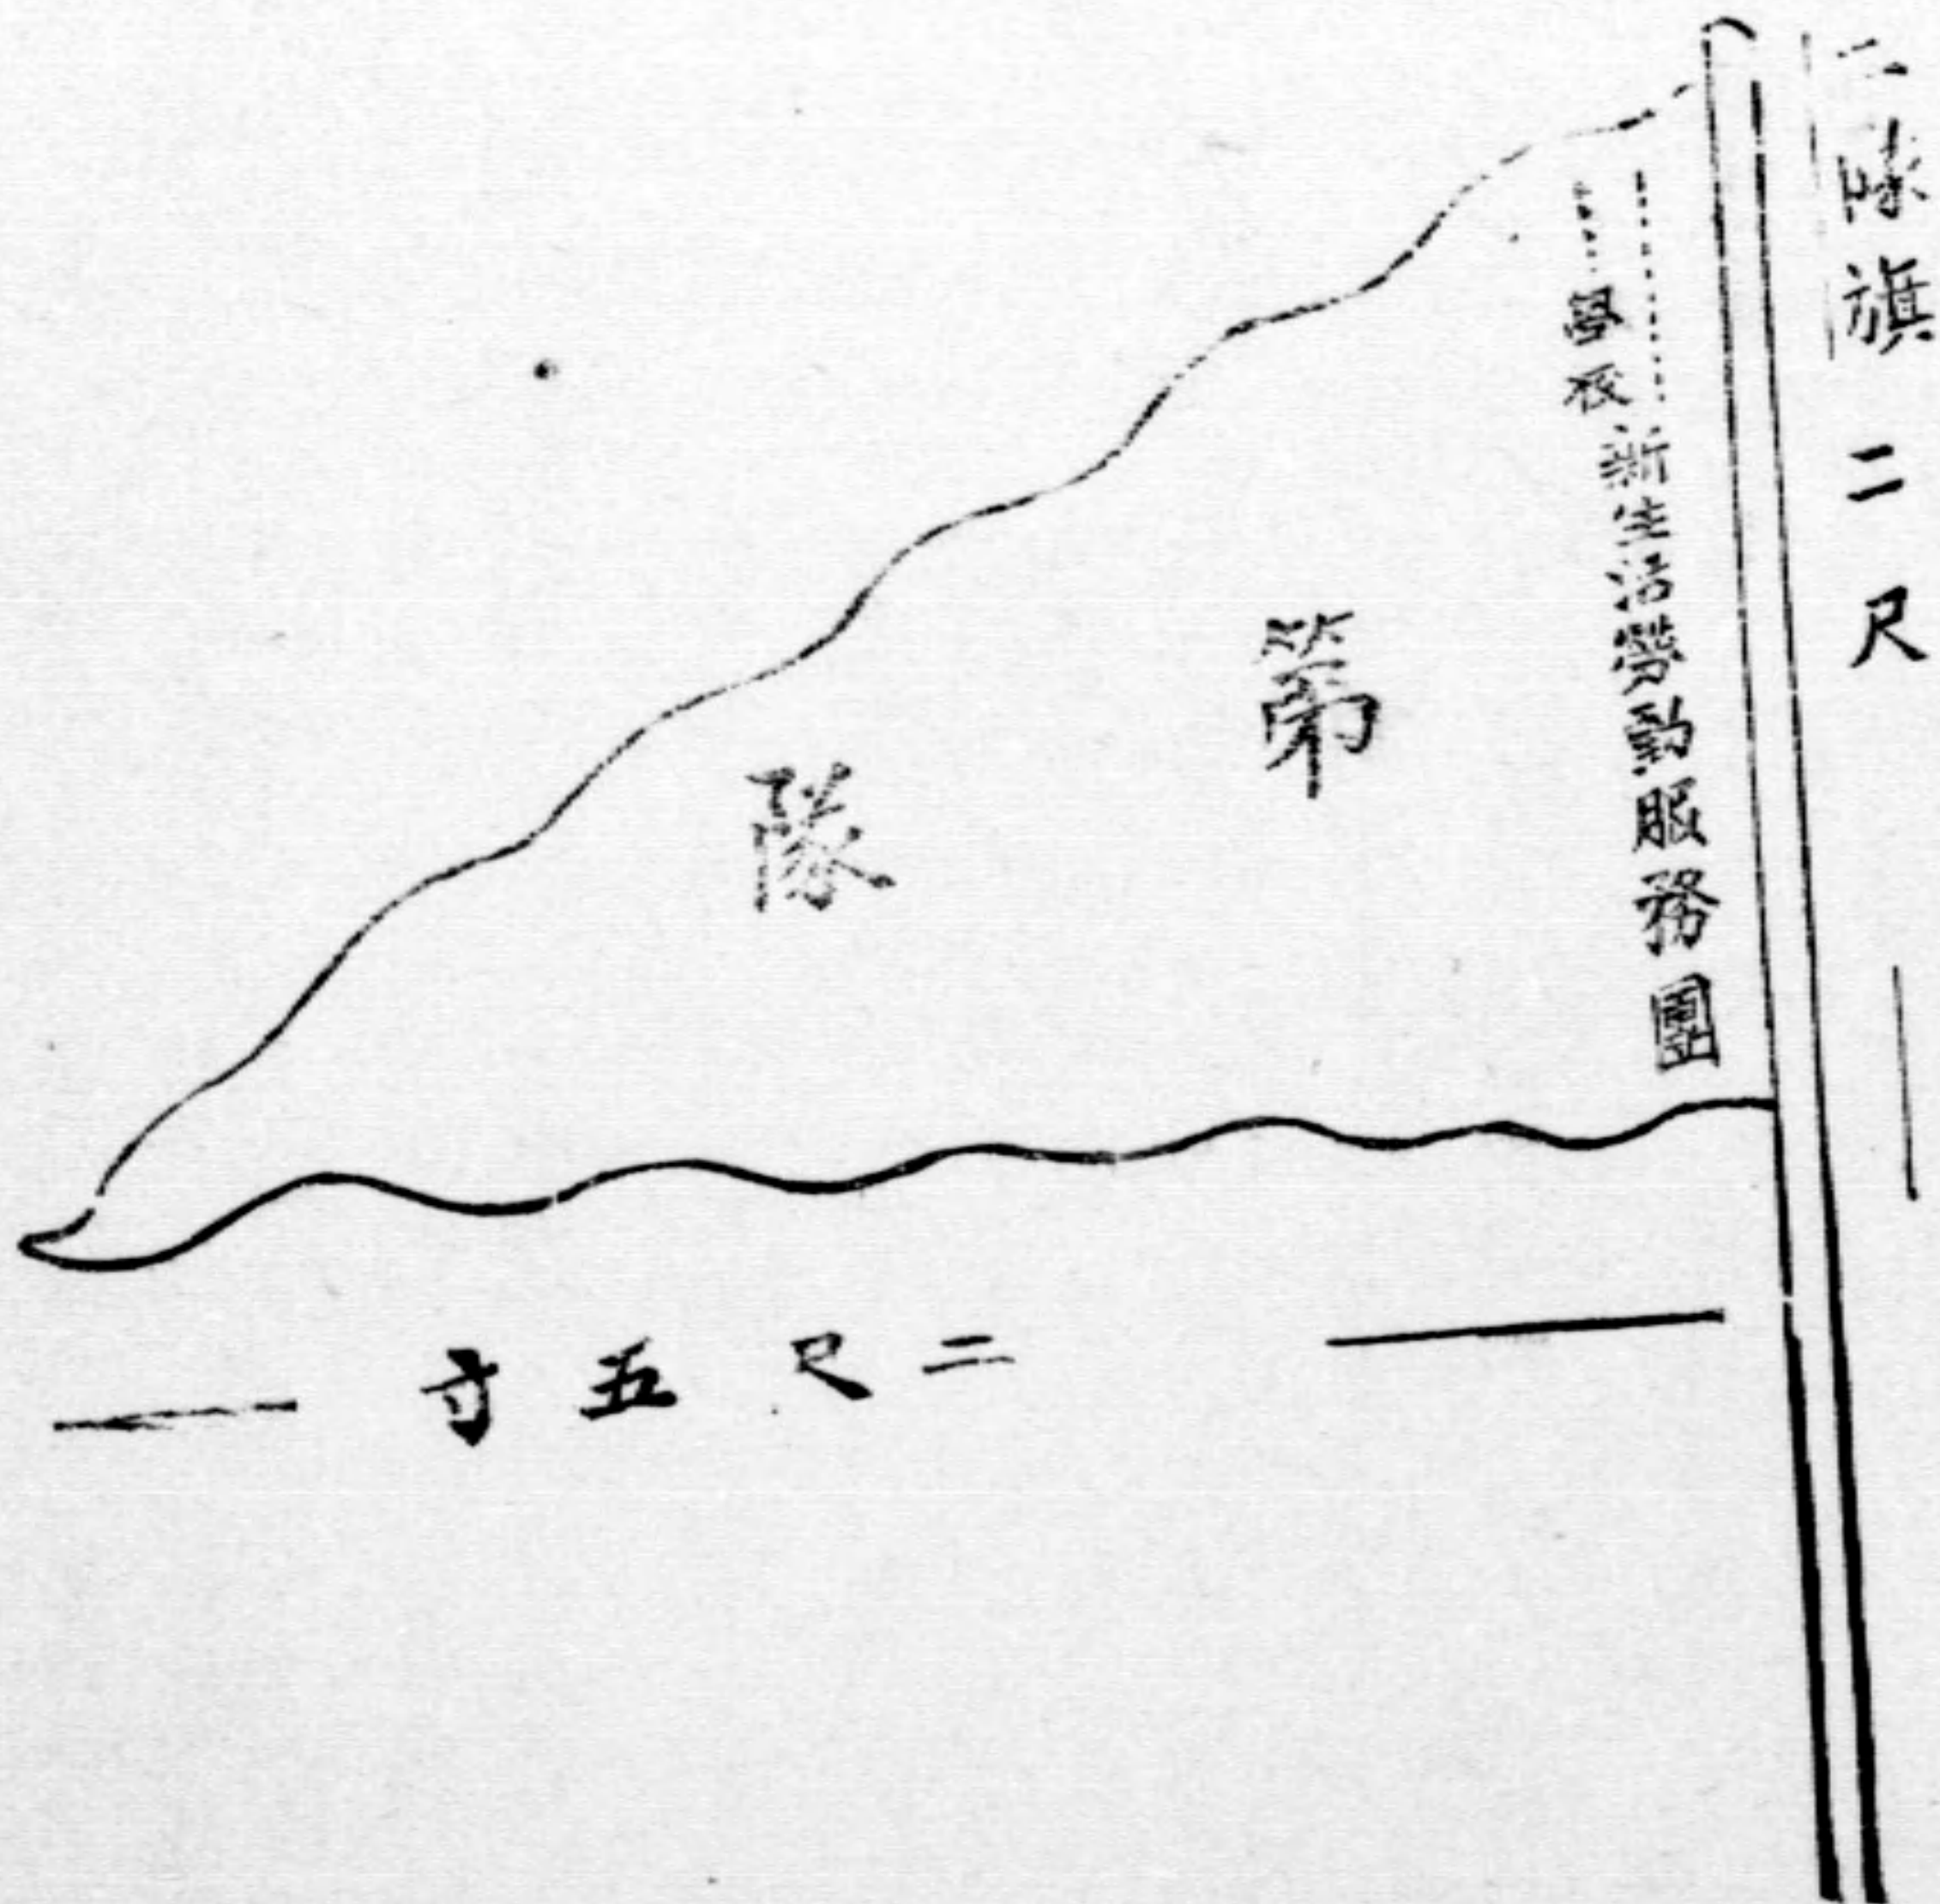 二隊旗
二尺
………學校
………新生活勞動服務團
第　隊
二尺五寸